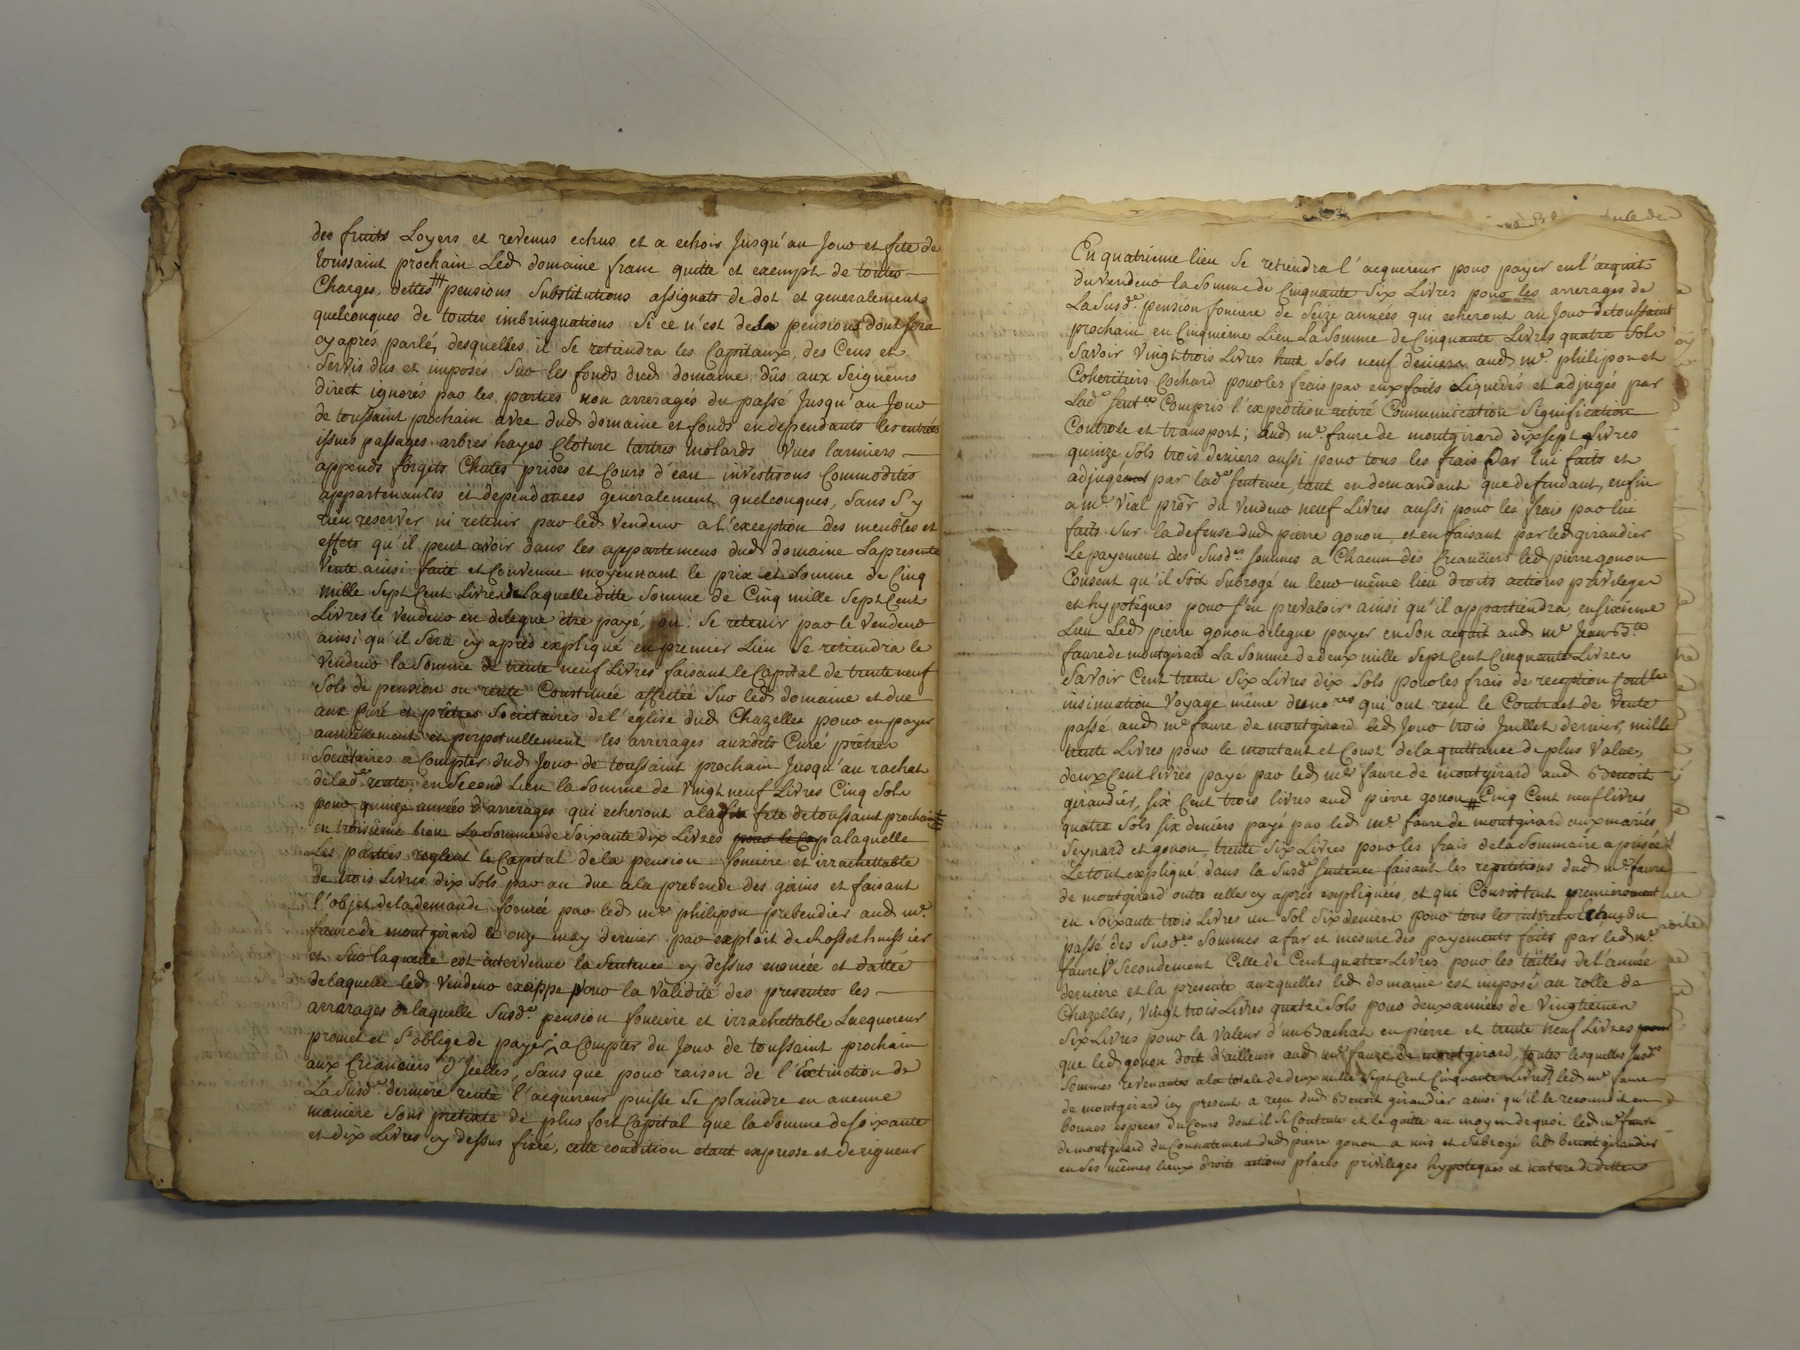 des fruits Loyers et revenus echus et a echoir Jusqu'au Jour et fete de
toussaint prochain Led. domaine franc quitte et exempt de toutes
Charges, dettes, # pensions Substitutions assignats de dot et generalement
quelconques de toutes imbringuations Si ce n'est de la pensions dont Sera
cy après parlé, desquelles il Se retiendra les Capitaux, des Cens et
Servis dus et imposés Sur les fonds dud. domaine dûs aux Seigneurs
direct ignorés par les parties non arrerages du passé Jusqu'au Jour
de toussaint prochain avec dud. domaine et fonds en dependants les entrées
issues passages arbres hayes Cloture tertres molards Vues larmiers
appends forgets Chutes prises et Cours d'eau investisons Commodités
appartenances et dependances generalement quelconques, Sans S'y
rien reserver ni retenir par led. Vendeur a l'exception des meubles et
effets qu'il peut avoir dans les appartemens dud. domaine La presente
Vente ainsi faite et Convenue moyennant le prix et Somme de Cinq
mille Sept Cent Livres de Laquelle ditte Somme de Cinq mille Sept Cent
Livres le Vendeur en delegue être payé, ou Se retenir par le Vendeur
ainsi qu'il Sera cy après expliqué en premier Lieu Se retiendra le
Vendeur la Somme de trente neuf Livres faisant le Capital de trente neuf
Sols de pension ou rente Constituée affectée Sur led. domaine et due
aux Curé et prêtres Societaires de l'eglise dud. Chazelles pour en payer
annuellement et perpetuellement les arrerages auxdits Curé prêtres
Sociétaires a Compter dud. Jour de toussaint prochain Jusqu'au rachat
de lad.e rente; en Second Lieu la Somme de Vingt neuf Livres Cinq Sols
pour quinze années d'arrerages qui echeront a lad. fete de toussaint prochain
en troisieme lieu La Somme de Soixante dix Livres a laquelle
Les parties reglent le Capital de la pension fonciere et irrachettable
de trois Livres dix Sols par an due a la prebende des girins et faisant
l'objet de la demande formée par led. mr. philipon prebendier aud. mr.
faure de montgirard le onze may dernier par exploit de Rosset huissier
et Sur laquelle est intervenue la Sentence cy dessus enoncée et dattée
de laquelle led. Vendeur excippe pour la Validité des presentes les
arrerages de laquelle Susd.e pension fonciere et irrachettable Lacquereur
promet et S'oblige de payer a Compter du Jour de toussaint prochain
aux Creanciers d'Jcelles, Sans que pour raison de l'extinction de
La Susd.e derniere rente l'acquereur puisse Se plaindre en aucune
maniere Sous pretexte de plus fort Capital que la Somme de Soixante
et dix Livres cy dessus fixée, cette condition etant expresse et de rigueur
En quatrieme lieu Se retiendra l'acquereur pour payer en l'acquit
du Vendeur la Somme de Cinquante Six Livres pour les arrerages de
La Susd.e pension fonciere de Seize années qui echeront au Jour de toussaint
prochain en Cinquieme Lieu La Somme de Cinquante Livres quatre Sols
Savoir Vingt trois Livres huit Sols neuf deniers aud. mr. philipon et
Coheritiers Cochard pour les frais par eux faits Liquidés et adjugés par
Lad.e Sent.ce Compris l'expedition retiré Communication Signification
Controle et transport; aud. mr. faure de montgirard dix Sept Livres
quinze Sols trois deniers aussi pour tous les frais par lui faits et
adjugés par lad.e Sentence, tant en demandant que defendant, enfin
a mr. Vial pror. du Vendeur neuf Livres aussi pour les frais par lui
faits Sur la defense dud. pierre gonon, et en faisant par led. girandier
Le payement des Susd.es Sommes a Chacun des Creanciers led. pierre gonon
Consent qu'il Soit Subrogé en leur même lieu droits actions privileges
et hypotêques pour S'en prevaloir ainsi qu'il appartiendra, en Sixieme
Lieu Led. pierre gonon delegue payer en Son acquit aud. mr. Jean B.te
faure de montgirard La Somme de deux mille Sept Cent Cinquante Livres
Savoir Cent trente Six Livres dix Sols pour les frais de reception
insinuation Voyage même des no.res qui ont reçu le Contract de Vente
passé aud. mr. faure de montgirard led. Jour trois Juillet dernier, mille
trente Livres pour le montant et Coust de la quittance de plus Value,
deux Cent livres payé par led. mr. faure de montgirard aud. Benoit
girandier, Six Cent trois livres aud. pierre gonon # Cinq Cent neuf livres
quatre Sols Six deniers payé par led. mr. faure de montgirard aux mariés
Seynard et gonon, trente Six Livres pour les frais de la Sommaire aprisée
Le tout expliqué dans la Susd.e Sentence faisant les repetitions dud. mr. faure
de montgirard outre celles cy après expliquées, et qui Consistent premierement
en Soixante trois Livres un Sol Six deniers pour tous les interets du
passé des Susd.es Sommes a far et mesure des payements faits par led. mr.
faure Secondement Celle de Cent quatre Livres pour les tailles de l'année
derniere et la presente auxquelles led. domaine est imposé au rolle de
Chazelles, Vingt trois Livres quatre Sols pour deux années de Vingtiemes
Six Livres pour la Valeur d'un Bachat en pierre et trente neuf Livres pour
que led. gonon doit d'ailleurs aud. mr. faure de montgirard, toutes lesquelles Susd.es
Sommes revenantes a la totale de deux mille Sept Cent Cinquante Livres, led. mr. faure
de montgirard icy present a reçu dud. Benoit girandier ainsi qu'il le reconnoit en
bonnes especes du Cours dont il Se Contente et le quitte au moyen de quoi led. mr. faure
de montgirard du Consentement dud. pierre gonon a mis et Subrogé led. benoit girandier
en Ses mêmes lieux droits actions places privileges hypoteques et nature de dettes